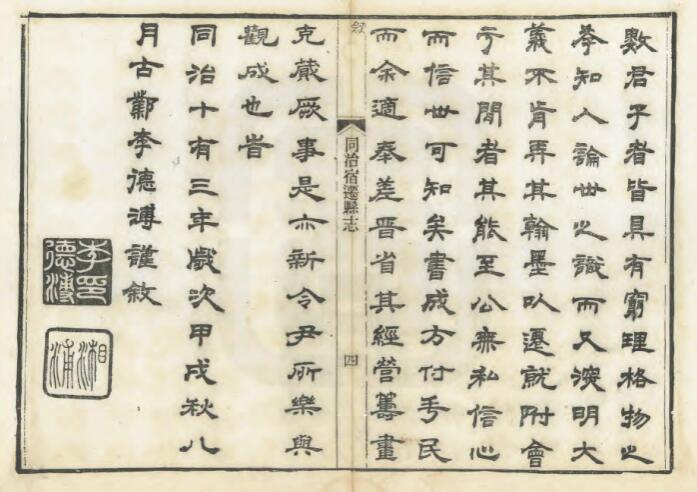 數君子者皆具有窮理格物之
學知人論世之識而又深明大
義不肯弄其翰墨以遷就附會
于其間者其能至公無私信心
而信世可知矣書成方付手民
而余適奉差晉省其經營籌畫
敘
同治宿遷縣志
四
克蕆厥事是亦新令尹所樂與
觀成也旹
同治十有三年歲次甲戌秋八
月古酇李德溥謹敘
李印德溥
湘浦